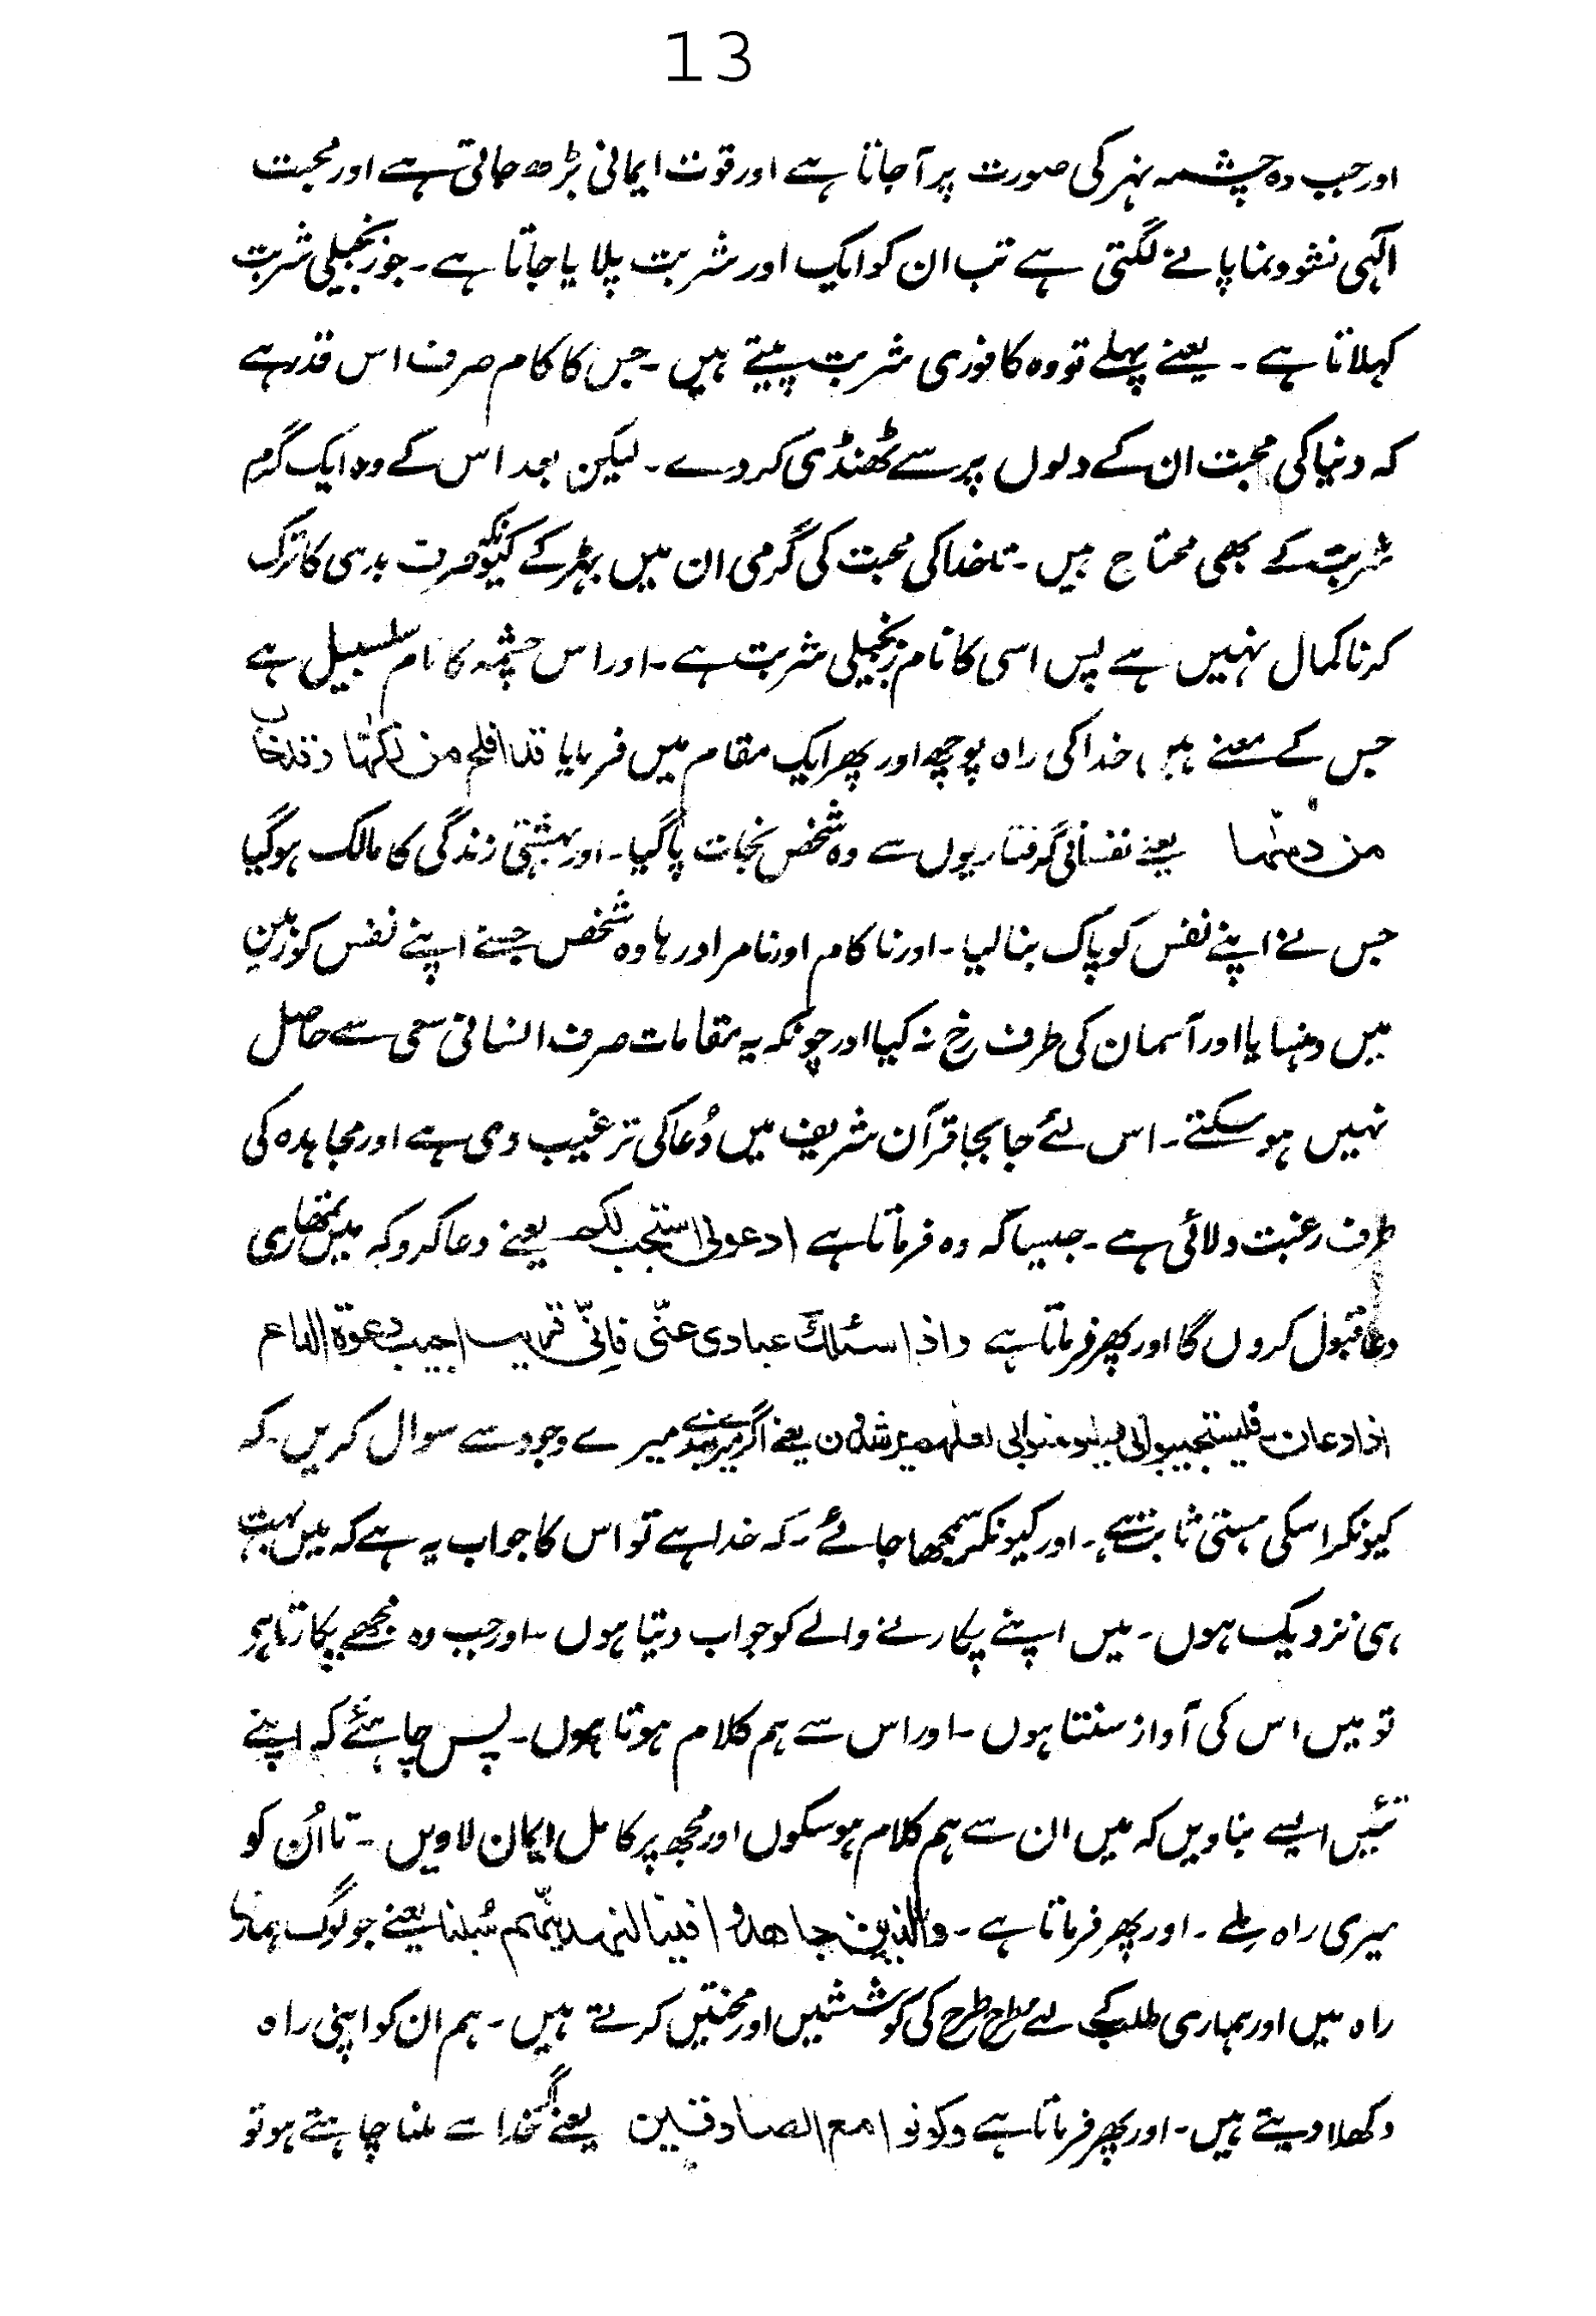 13
اور جب وہ چشمہ نہر کی صورت پر آجاتا ہے اور قوت ایمانی بڑھ جاتی ہے اور محبت
الٰہی نشوونما پانے لگتی ہے تب ان کو ایک اور شربت پلایا جاتا ہے۔ جو زنجبیلی شربت
کہلاتا ہے۔ یعنے پہلے تو وہ کافوری شربت پیتے ہیں۔ جس کا کام صرف اس قدر ہے
کہ دنیا کی محبت ان کے دلوں پر سے ٹھنڈی کردے۔ لیکن بعد اس کے وہ ایک گرم
شربت کے بھی محتاج ہیں۔ تا خدا کی محبت کی گرمی ان میں بھڑکے کیونکہ صرف بدی کا ترک
کرنا کمال نہیں ہے پس اسی کا نام زنجبیلی شربت ہے۔ اور اس چشمہ کا نام سلسبیل ہے
جس کے معنے ہیں خدا کی راہ پوچھ اور پھر ایک مقام میں فرمایا قد افلح من زکّٰہا وقد خاب
من دسّٰہا یعنے نفسانی گرفتاریوں سے وہ شخص نجات پاگیا۔ اور بہشتی زندگی کا مالک ہوگیا
جس نے اپنے نفس کو پاک بنالیا۔ اور ناکام اور نامراد رہا وہ شخص جسنے اپنے نفس کو زمین
میں دہنسایا اور آسمان کی طرف رخ نہ کیا اور چونکہ یہ مقامات صرف انسانی سعی سے حاصل
نہیں ہو سکتے۔ اس لئے جا بجا قرآن شریف میں دُعا کی ترغیب دی ہے اور مجاہدہ کی
طرف رغبت دلائی ہے۔ جیسا کہ وہ فرماتا ہے ادعونی استجب لکم یعنے دعا کرو کہ میں تمھاری
دعا قبول کروں گا اور پھر فرماتا ہے واذا سئلک عبادی عنّی فانّی قریب اجیب دعوۃ الداع
اذا دعان فلیستجیبوالی ولیومنوابی لعلہم یرشدون یعنے اگر میرے بندے میرے وجود سے سوال کریں۔ کہ
کیونکر اسکی ہستی ثابت ہے۔ اور کیونکر سمجھا جائے۔ کہ خدا ہے تو اس کا جواب یہ ہے کہ میں بہت
ہی نزدیک ہوں۔ میں اپنے پکارنے والے کو جواب دیتا ہوں۔ اور جب وہ مجھے پکارتا ہو
تو میں اس کی آواز سنتا ہوں۔ اور اس سے ہم کلام ہوتا ہوں۔ پس چاہئے کہ اپنے
تئیں ایسے بناویں کہ میں ان سے ہم کلام ہو سکوں اور مجھ پر کامل ایمان لاویں۔ تا اُن کو
میری راہ ملے۔ اور پھر فرماتا ہے۔ والذین جاھدوا فینا لنہدینّہم سُبلنا یعنے جو لوگ ہماری
راہ میں اور ہماری طلب کے لئے طرح طرح کی کوششیں اور محنتیں کرتے ہیں۔ ہم ان کو اپنی راہ
دکھلا دیتے ہیں۔ اور پھر فرماتا ہے وکونوا مع الصادقین یعنے اگر خدا سے ملنا چاہتے ہو تو